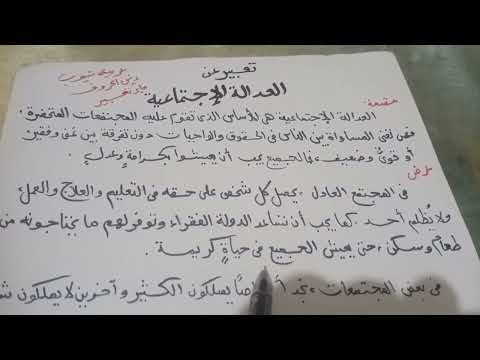 تعبير عن
العدالة الإجتماعية
مقدمة
العدالة الإجتماعية هي الأساس الذي تقوم عليه المجتمعات المتحضرة
فهي تعني المساواة بين الناس في الحقوق والواجبات دون تفرقة بين غني وفقير
أو قوي وضعيف، فالجميع يجب أن يعيشوا بكرامة وعدل.
عرض
في المجتمع العادل، يحصل كل شخص على حقه في التعليم والعلاج والعمل
ولا يُظلم أحد. كما يجب أن تساعد الدولة الفقراء وتوفر لهم ما يحتاجونه من
طعام وسكن، حتى يعيش الجميع في حياةٍ كريمة.
في بعض المجتمعات، نجد يملكون الكثير وآخرين لا يملكون